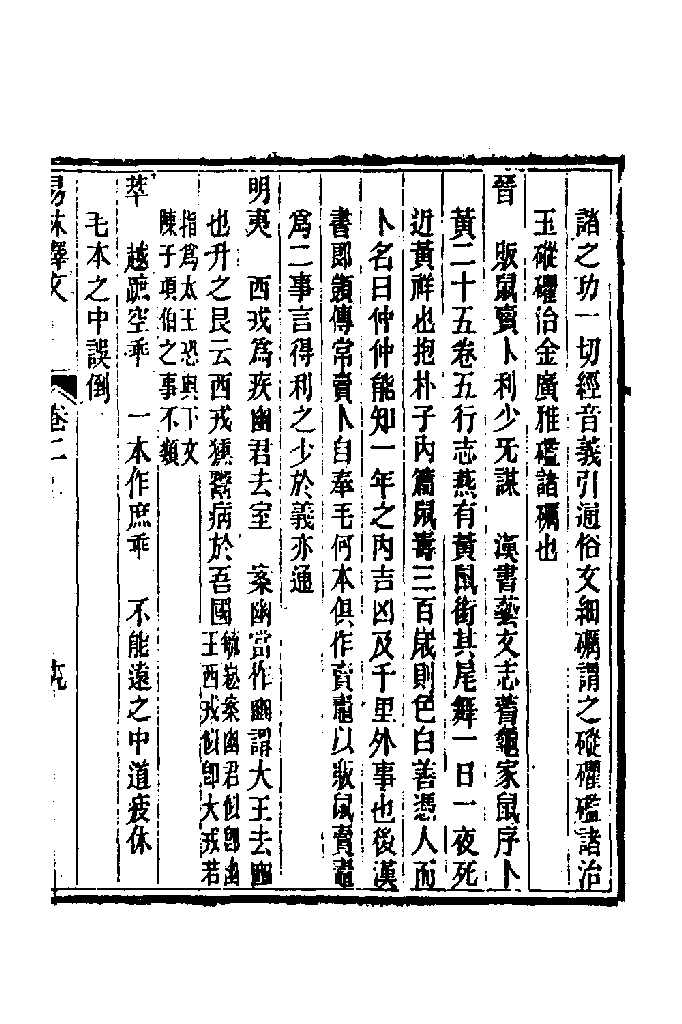 諸之功一切經音義引通俗文細礪謂之磫礭礛諸治
玉磫礭治金廣雅礛諸礪也
晉　販鼠賣卜利少无謀　漢書藝文志蓍龜家鼠序卜
黃二十五卷五行志燕有黃鼠銜其尾舞一日一夜死
近黃祥也抱朴子內篇鼠壽三百歲則色白善憑人而
卜名曰仲仲能知一年之內吉凶及千里外事也後漢
書郎顗傳常賣卜自奉毛何本俱作賣龜以販鼠賣龜
爲二事言得利之少於義亦通
明夷　西戎爲疾幽君去室　案幽當作豳謂大王去豳
也升之艮云西戎獯鬻病於吾國毓崧案幽君似卽幽王西戎似卽大戎若
指爲太王恐與下文陳子項伯之事不類
萃　越蹠空乖　一本作庶乖　不能遠之中道疲休
毛本之中誤倒
易林釋文　卷二　九